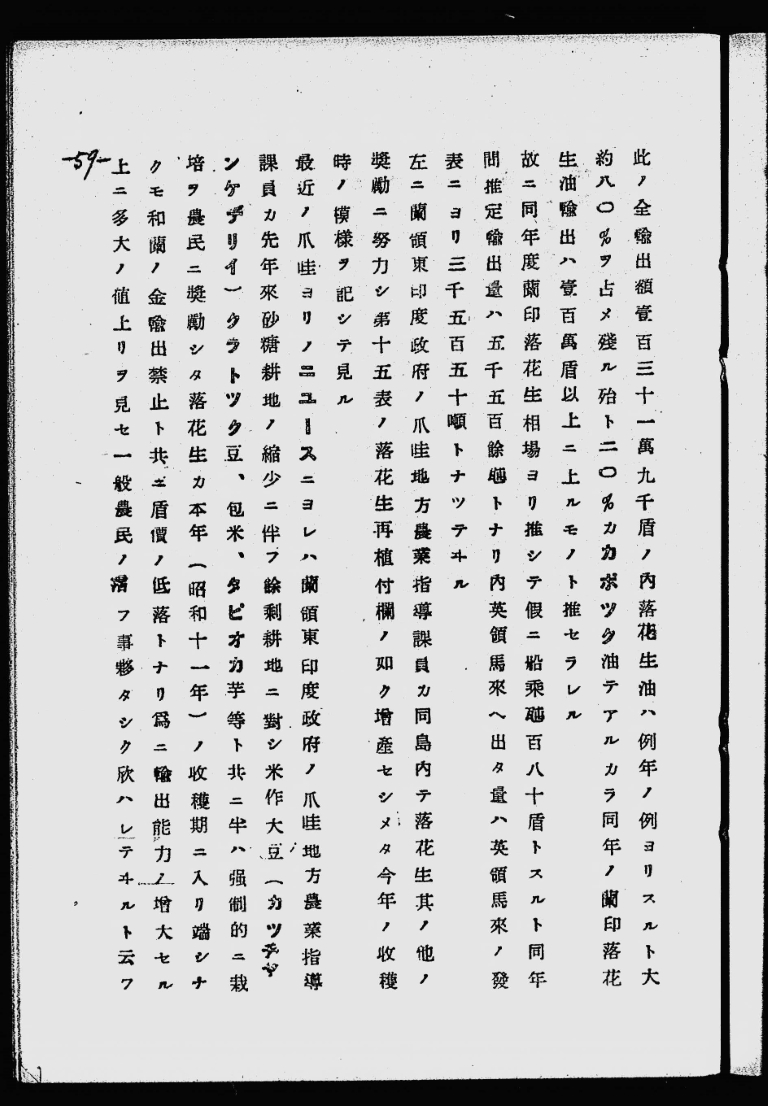 此ノ全輸出額壹百三十一萬九千盾ノ內落花生油ハ例年ノ例ヨリスルト大
約八〇％ヲ占メ殘ル殆ト二〇％カカポツク油テアルカラ同年ノ蘭印落花
生油輸出ハ壹百萬盾以上ニ上ルモノト推セラレル
故ニ同年度蘭印落花生相場ヨリ推シテ假ニ船乘瓲百八十盾トスルト同年
間推定輸出量ハ五千五百餘瓲トナリ內英領馬來ヘ出タ量ハ英領馬來ノ發
表ニヨリ三千五百五十噸トナツテヰル
左ニ蘭領東印度政府ノ爪哇地方農業指導課員カ同島內テ落花生其ノ他ノ
奬勵ニ努力シ第十五表ノ落花生再植付欄ノ如ク增產セシメタ今年ノ收穫
時ノ模樣ヲ記シテ見ル
最近ノ爪哇ヨリノニユースニヨレハ蘭領東印度政府ノ爪哇地方農業指導
課員カ先年來砂糖耕地ノ縮少ニ伴フ餘剩耕地ニ對シ米作大豆（カツチヤ
ンケデリイ）クラトツク豆、包米、タピオカ芋等ト共ニ半ハ强制的ニ栽
培ヲ農民ニ奬勵シタ落花生カ本年（昭和十一年）ノ收穫期ニ入リ端シナ
クモ和蘭ノ金輸出禁止ト共ニ盾價ノ低落トナリ爲ニ輸出能力ノ增大セル
上ニ多大ノ値上リヲ見セ一般農民ノ潤フ事夥タシク欣ハレテヰルト云フ
-59-